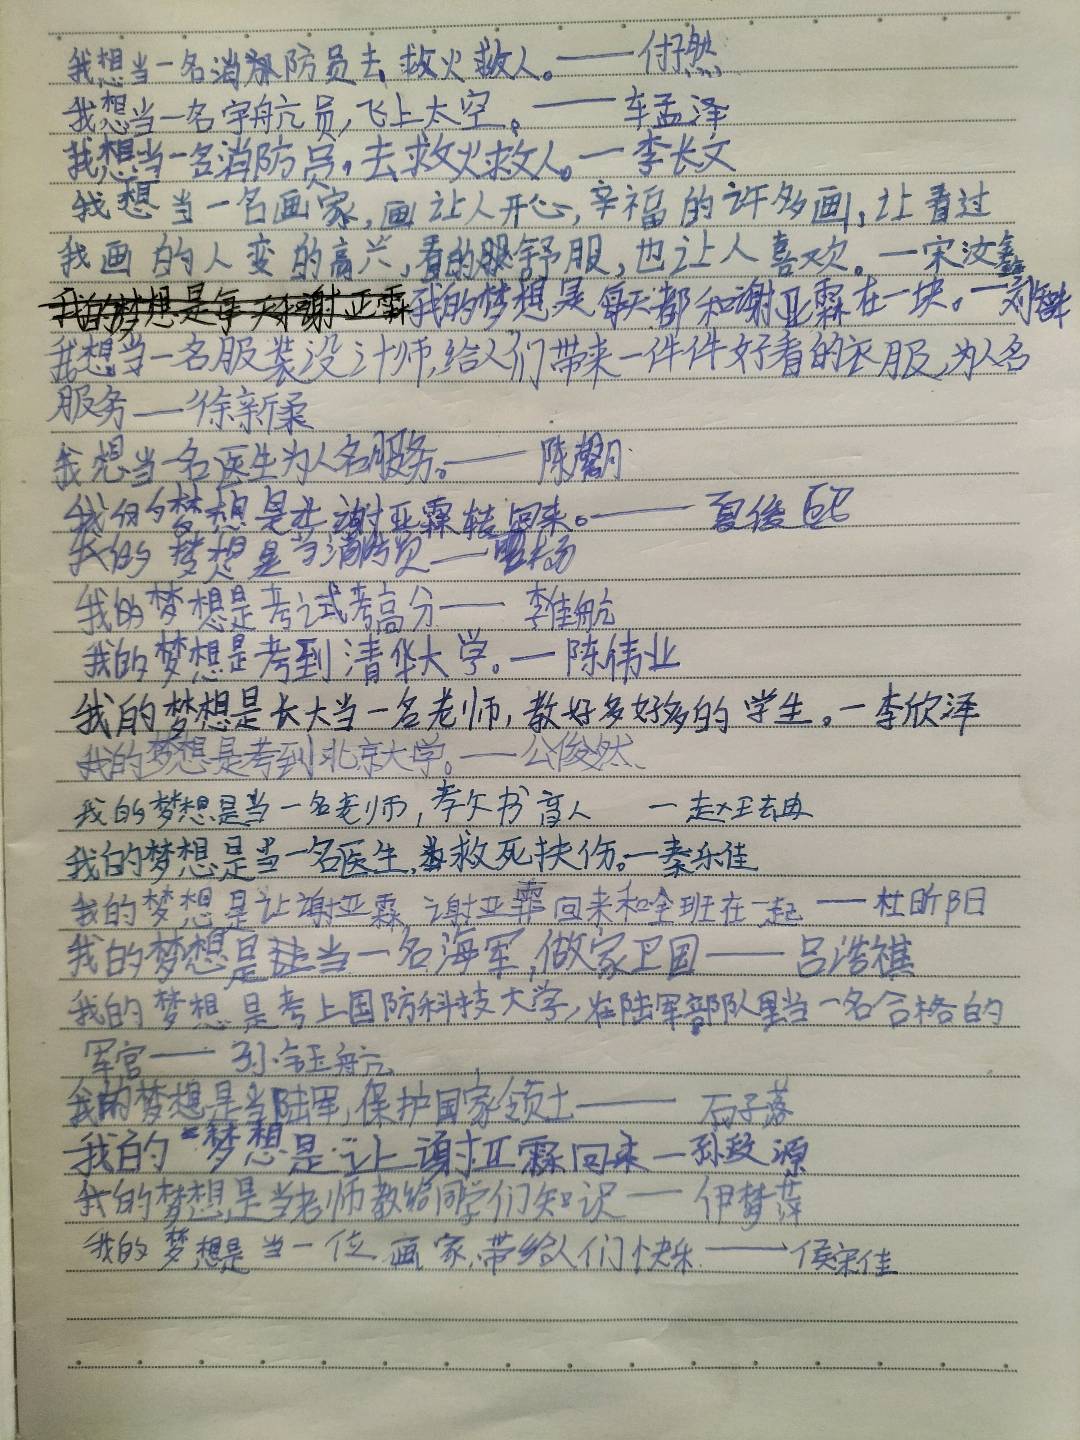 我想当一名消防员去救火救人。——付子然
我想当一名宇航员,飞上太空。——车孟泽
我想当一名消防员,去救火救人。—李长文
我想当一名画家,画让人开心,幸福的许多画,让看过
我画的人变的高兴,看的眼舒服,也让人喜欢。—宋汶
我的梦想是每天和谢亚霖我的梦想是每天都和谢亚霖在一块。—刘
我想当一名服装设计师,给人们带来一件件好看的衣服,为人名
服务——徐新柔
我想当一名医生为人名服务。——陈馨月
我的梦想是让谢亚霖转回来。——夏俊
我的梦想是当消防员——
我的梦想是考试考高分——李佳航
我的梦想是考到清华大学。—陈伟业
我的梦想是长大当一名老师,教好多好多的学生。—李欣泽
我的梦想是考到北京大学。——公俊然
我的梦想是当一名老师,孝欠书育人 —赵
我的梦想是当一名医生,救死扶伤。—秦乐佳
我的梦想是让谢亚霖,谢亚霖回来和全班在一起——杜昕阳
我的梦想是当一名海军,做家卫国——吕浩祺
我的梦想是考上国防科技大学,在陆军部队里当一名合格的
军官——孙钰航
我的梦想是当陆军,保护国家领土——石子落
我的梦想是让谢亚霖回来—孙政源
我的梦想是当老师教给同学们知识——伊梦萍
我的梦想是当一位画家,带给人们快乐——侯宋佳